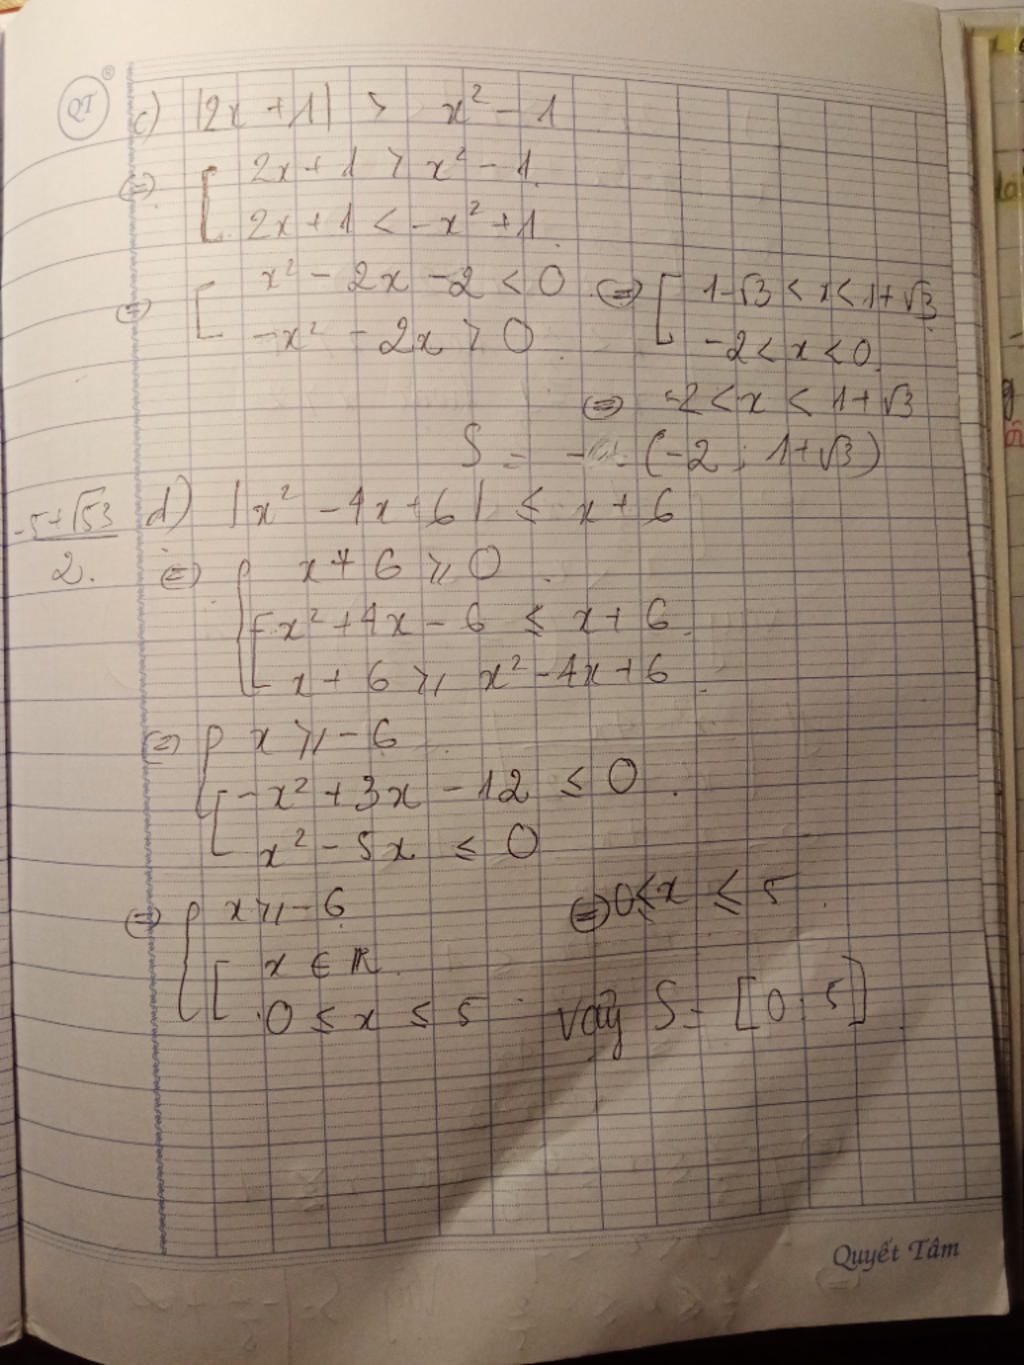 QT ®
c) |2x + 1| > x² - 1
⇔ [ 2x + 1 > x² - 1
2x + 1 < -x² + 1
⇔ [ x² - 2x - 2 < 0 ⇔ [ 1 - √3 < x < 1 + √3
-x² - 2x > 0 -2 < x < 0
⇔ -2 < x < 1 + √3
S = (-2 ; 1 + √3)
-5 + √53 / 2.
d) |x² - 4x + 6| ≤ x + 6
⇔ { x + 6 ≥ 0
[ -x² + 4x - 6 ≤ x + 6
x + 6 ≥ x² - 4x + 6
⇔ { x ≥ -6
[ -x² + 3x - 12 ≤ 0
x² - 5x ≤ 0
⇔ { x ≥ -6 ⇔ 0 ≤ x ≤ 5
[ x ∈ ℝ
0 ≤ x ≤ 5 Vậy S = [0 ; 5]
Quyết Tâm